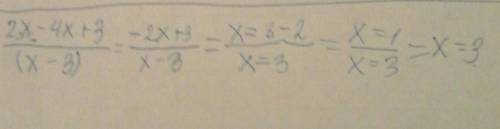 (2x-4x+3)/(x-3) = (-2x+3)/(x-3) = (x=3-2)/(x=3) = (x=1)/(x=3) = x=3